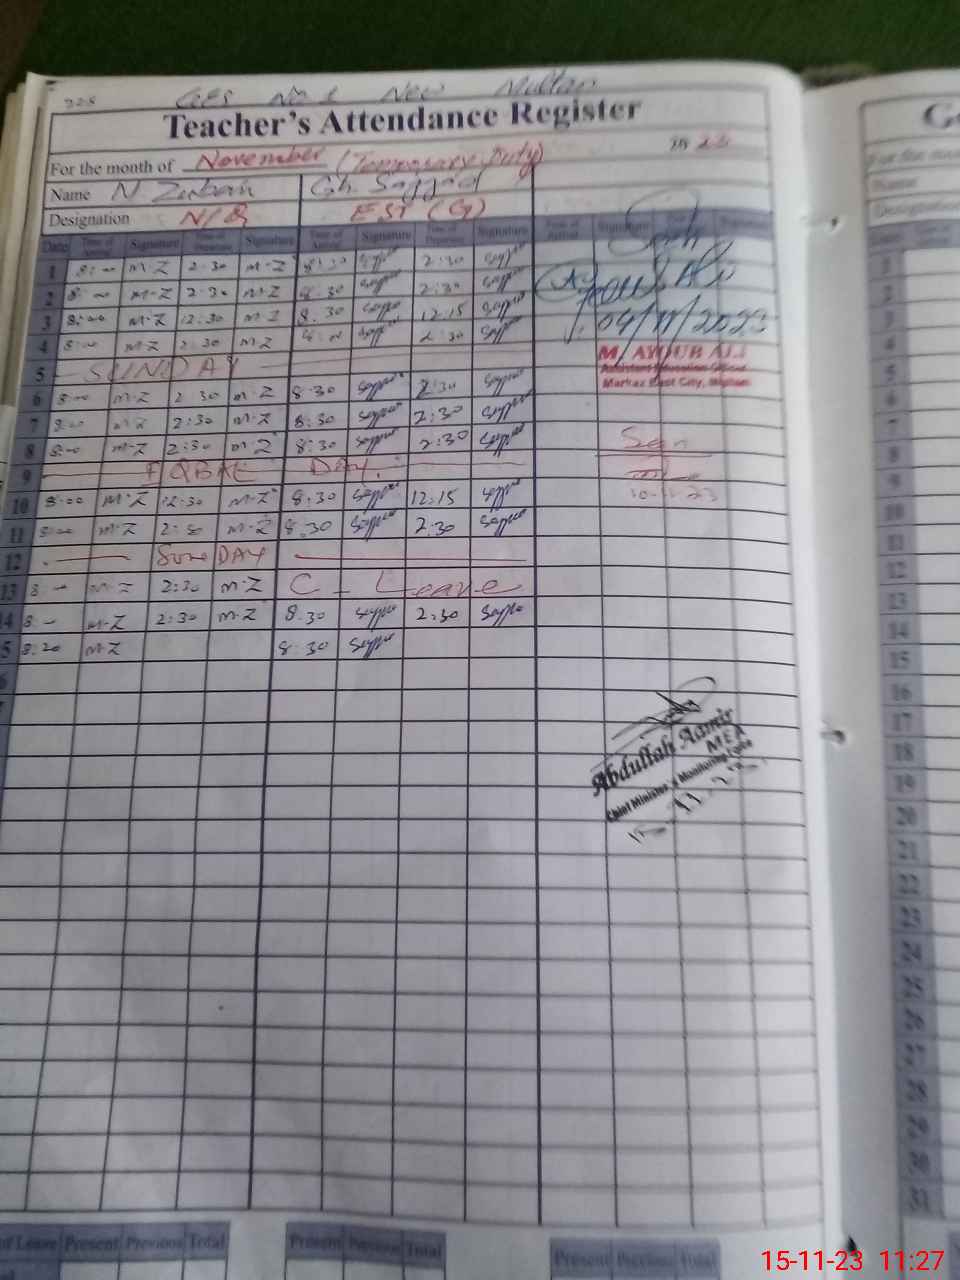 225 GES No 1 New Multan
Teacher's Attendance Register
For the month of November (Temporary Duty) 20 23
Name M Zubair Ch. Sajjad
Designation N/Q EST (G)
Date Time of Arrival Signature Time of Departure Signature Time of Arrival Signature Time of Departure Signature Time of Arrival Signature Signature
1 8:00 M-Z 2:30 M-Z 8:30 2:30
2 8:00 M-Z 2:30 M-Z 8:30 2:30
3 8:00 M-Z 12:30 M-Z 8:30 12:15
04/11/2023
4 8:00 M-Z 2:30 M-Z 2:30
M. AYOUB ALI
5 SUNDAY
Assistant Education Officer
Markaz East City, Multan
6 8:00 M-Z 2:30 M-Z 8:30 2:30
7 8:00 M-Z 2:30 M-Z 8:30 2:30
8 8:00 M-Z 2:30 M-Z 8:30 2:30
9 IQBAL DAY.
10 8:00 M-Z 12:30 M-Z 8:30 12:15
10-11-23
11 8:00 M-Z 2:30 M-Z 8:30 2:30
12 SUNDAY
13 8- M-Z 2:30 M-Z C - Leave
14 8- M-Z 2:30 M-Z 8:30 2:30
5 8:20 M-Z 8:30
6
7
Abdullah Aamir
MEA
Chief Minister's Monitoring Force
of Leave Present Previous Total Present Previous Total Present Previous Total
1
2
3
4
5
6
7
8
9
10
11
12
13
14
15
16
17
18
19
20
21
22
23
24
25
26
27
28
29
30
31
15-11-23 11:27